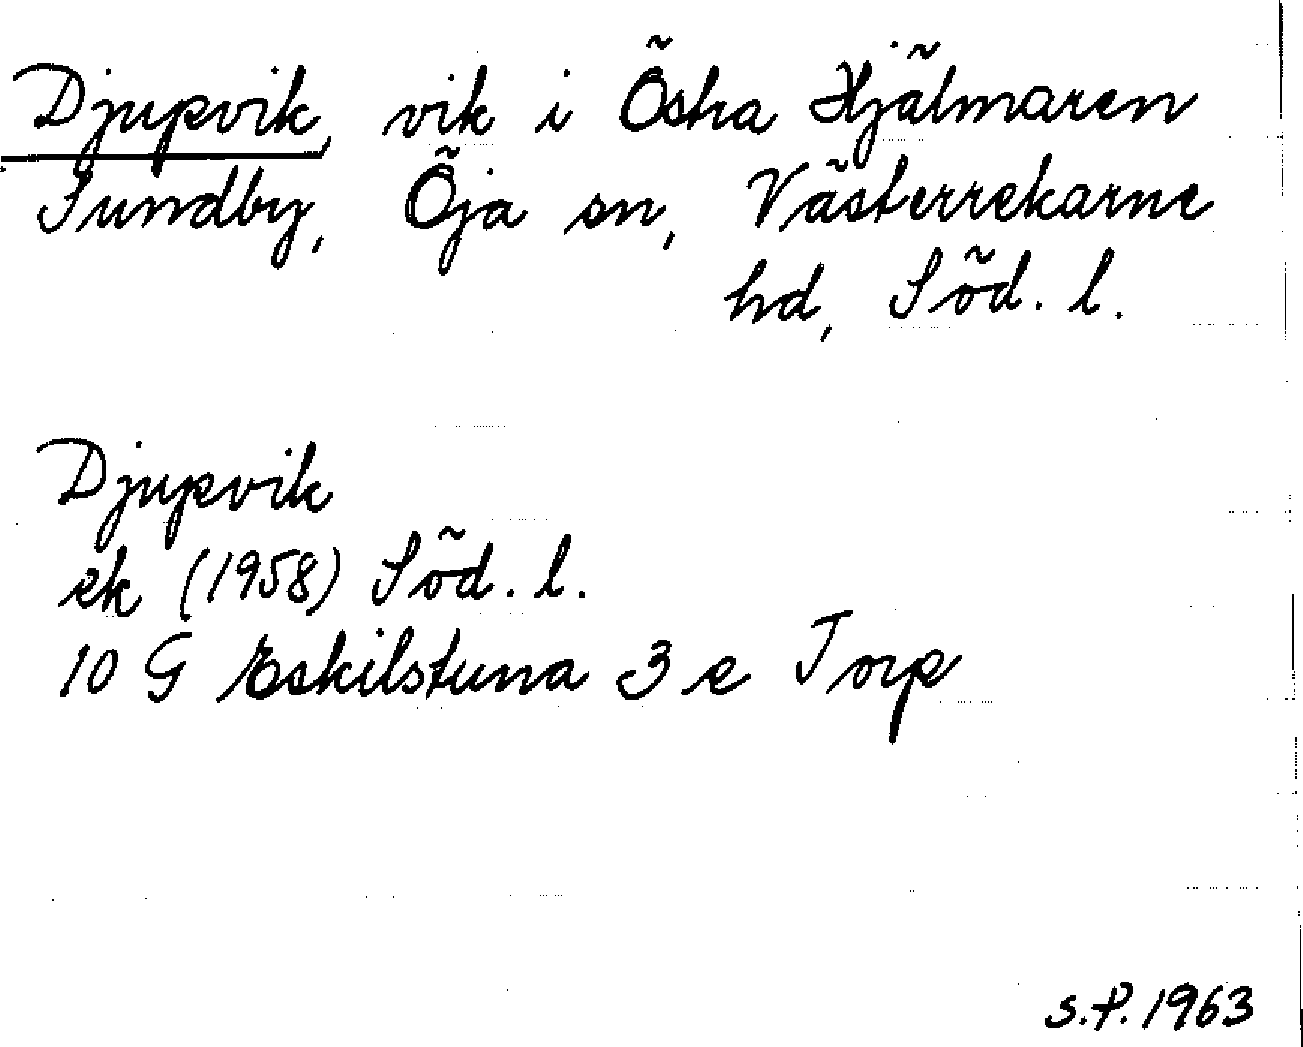 Djupvik, vik i Östra Hjälmaren
Sundby, Öja sn, Västerrekarne
hd, Söd. l.
Djupvik
ek (1958) Söd. l.
10 G Eskilstuna 3 e Torp
S.P. 1963